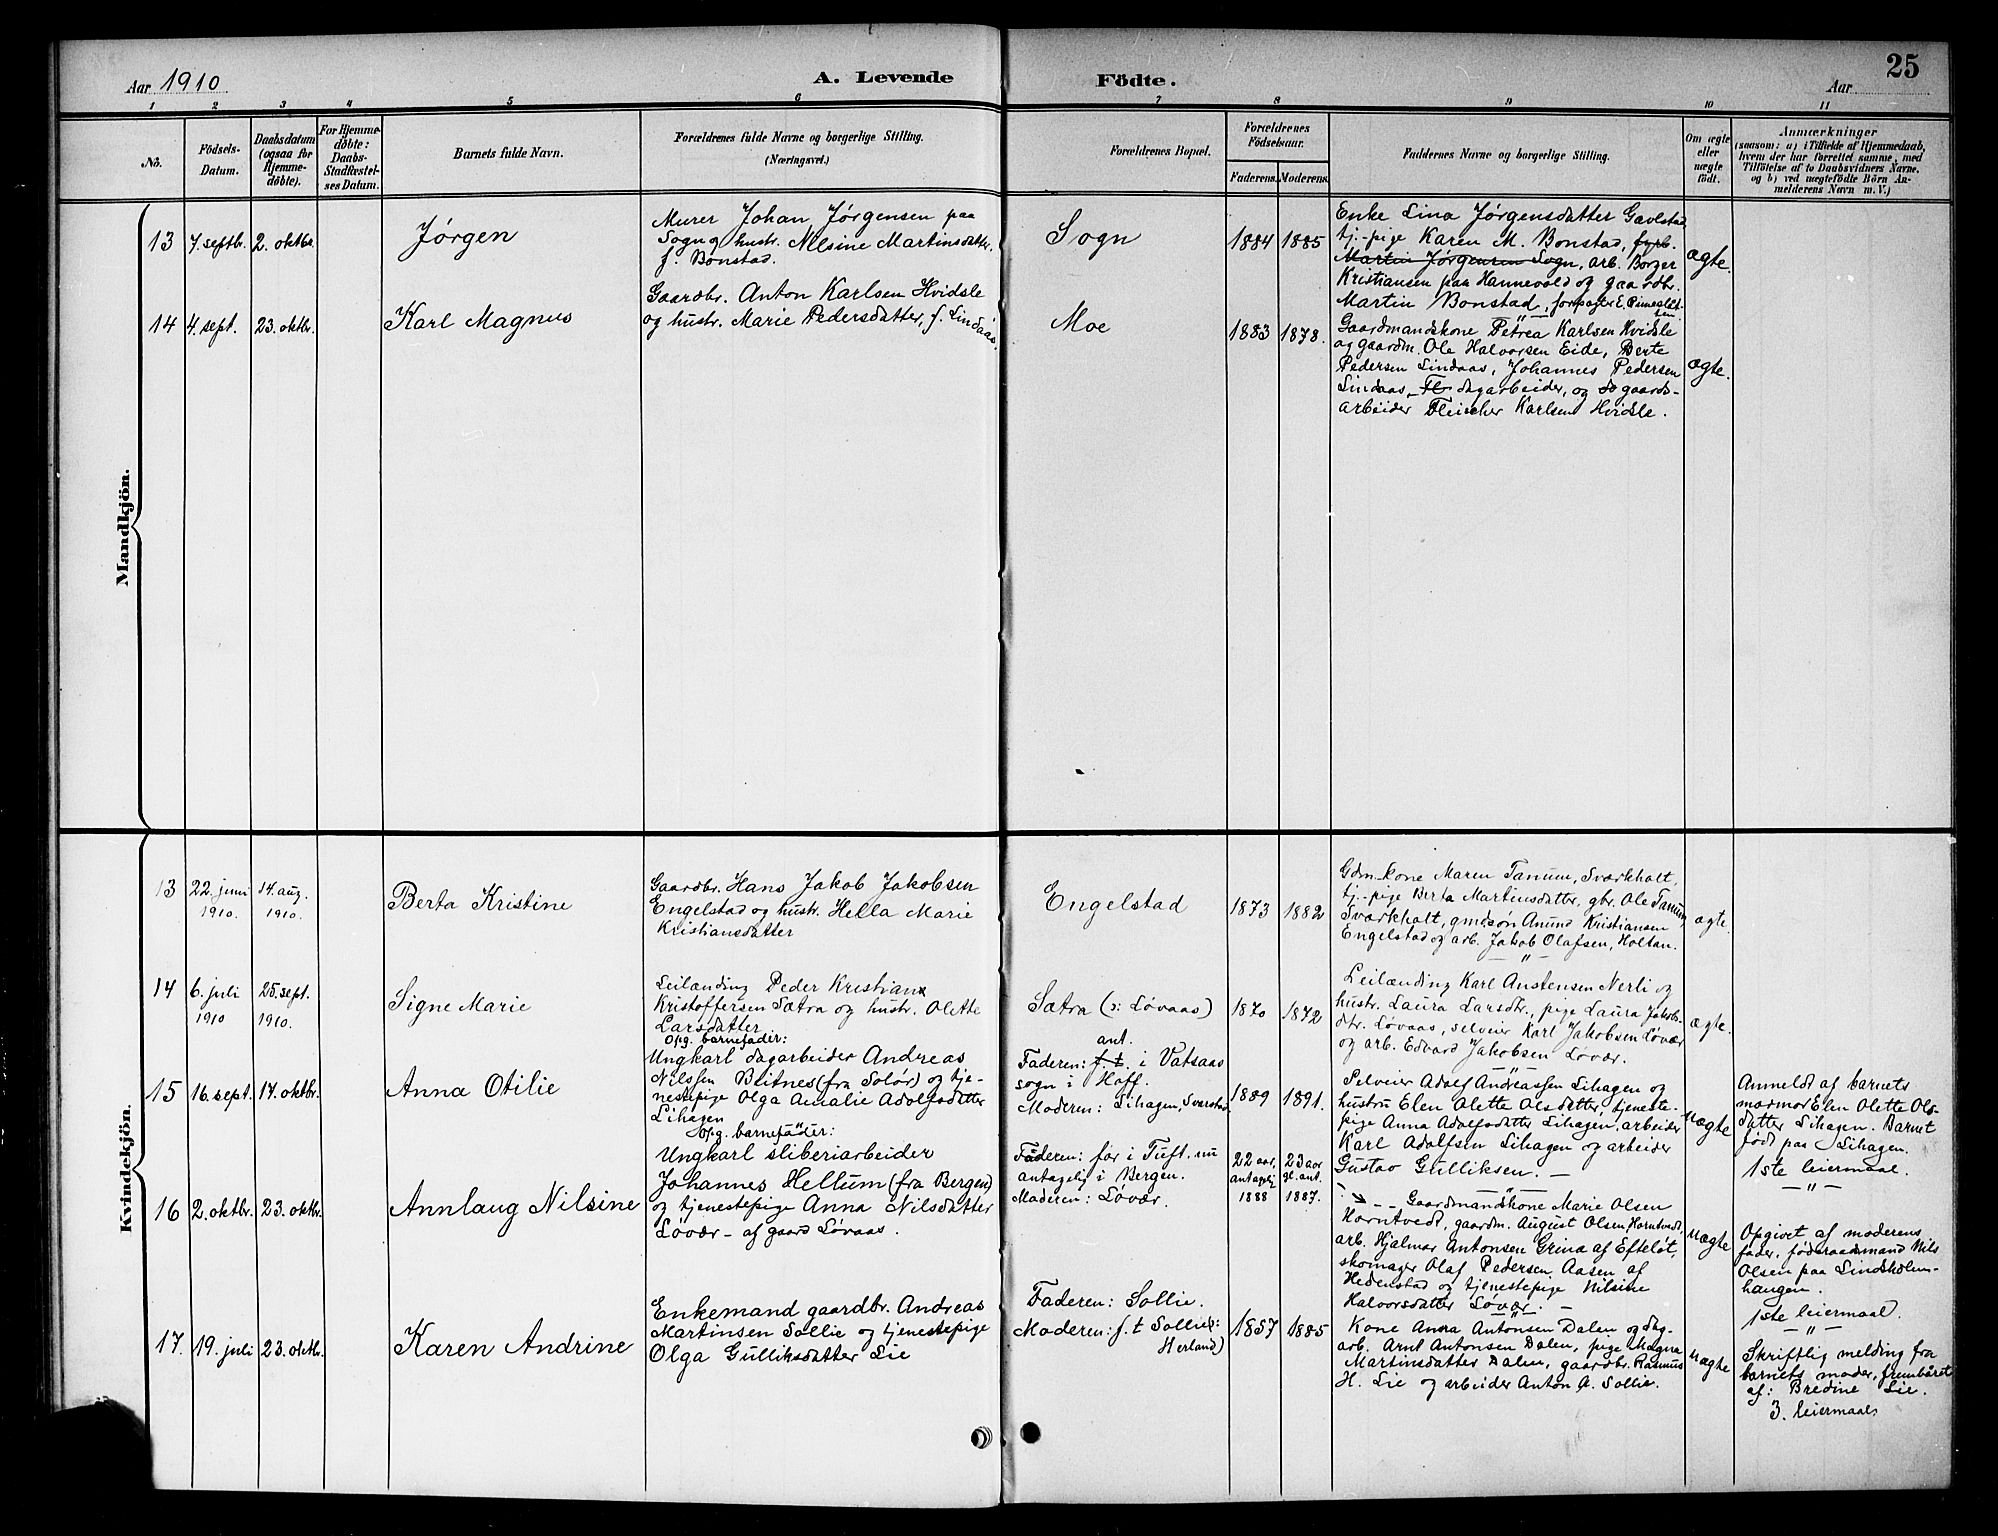 Aar 1910
A. Levende Födte.
Aar
25
1 2 3 4 5 6 7 8 9 10 11
No.
Födsels-
Datum.
Daabsdatum
(ogsaa for
Hjemme-
døbte).
For Hjemme-
døbte:
Daabs-
Stadfæstel-
ses Datum.
Barnets fulde Navn.
Forældrenes fulde Navne og borgerlige Stilling.
(Næringsvei.)
Forældrenes Bopæl.
Forældrenes
Födselsaar.
Faderens. Moderens.
Faddernes Navne og borgerlige Stilling.
Om ægte
eller
uægte
født.
Anmærkninger
(saasom: a) i Tilfælde af Hjemmedaab,
hvem der har forrettet samme, med
Tilföielse af to Daabsvidners Navne,
og b) ved uægtefødte Börn An-
melderens Navn m. V.)
Mandkjön.
13
7. septbr.
2. oktbr.
Jørgen
Murer Johan Jørgensen paa
Sogn og hustr. Nilsine Martinsdattr.
f. Bonstad.
Sogn
1884
1885
Enke Lina Jørgensdatter Gavlstad,
tj.-pige Karen M. Bonstad, fyrb.
Martin Jørgensen Sogn, arb. Borger
Kristiansen paa Hannevold og gaardbr.
Martin Bonstad, forpagter E.
ægte.
14
4. sept.
23. oktbr.
Karl Magnus
Gaardbr. Anton Karlsen Hvidsle
og hustr. Marie Pedersdatter, f. Lindaas.
Moe
1883
1878.
Gaardmandskone Petrea Karlsen Hvidsle
og gaardm. Ole Halvorsen Eide, Berte
Pedersen Lindaas, Johannes Pedersen
Lindaas, Fl dagarbeider, og do gaards-
arbeider Fleischer Karlsen Hvidsle.
ægte.
Kvindekjön.
13
22. juni
1910.
14. aug.
1910.
Berta Kristine
Gaardbr. Hans Jakob Jakobsen
Engelstad og hustr. Hella Marie
Kristiansdatter
Engelstad
1873
1882
Gdm.-kone Maren Tanum, Sværkholt,
tj.-pige Berta Martinsdatter, gbr. Ole Tanum,
Sværkholt, gmdsøn Anund Kristiansen
Engelstad og arb. Jakob Olafsen, Holtan.
ægte.
14
6. juli
1910
25. sept.
1910.
Signe Marie
Leilænding Peder Kristian
Kristoffersen Sætra og hustr. Olette
Larsdatter
Sætra (ɔ: Løvaas)
1870
1872
Leilænding Karl Austensen Nerli og
hustr. Laura Larsdtr., pige Laura Jakobs-
dtr. Løvaas, selveier Karl Jakobsen Løvær
og arb. Edvard Jakobsen Løvær.
ægte.
15
16. sept.
17. oktbr.
Anna Otilie
Opg. barnefader:
Ungkarl dagarbeider Andreas
Nilssen Britnes (fra Solør) og tje-
nestepige Olga Amalie Adolfsdatter
Lihagen
ant.
Faderen: f. t. i Vatsaas
sogn i Hoff.
Moderen: Lihagen, Svarstad
1889
1891.
Selveier Adolf Andreassen Lihagen og
hustru Elen Olette Olsdatter, tjeneste-
pige Anna Adolfsdatter Lihagen, arbeider
Karl Adolfsen Lihagen og arbeider
Gustav Gulliksen. —
uægte
Anmeldt af barnets
mormor Elen Olette Ols-
datter Lihagen. Barnet
født paa Lihagen.
1ste leiermaal.
16
2. oktbr.
23. oktbr.
Annlaug Nilsine
Opg. barnefader:
Ungkarl sliberiarbeider
Johannes Hellum (fra Bergen)
og tjenestepige Anna Nilsdatter
Løvær – af gaard Løvaas.
Faderen: før i Tuft. nu
antagelig i Bergen.
Moderen: Løvær.
22 aar,
antagelig
1888
23 aar
gl. ant.
1887.
Gaardmandskone Marie Olsen
Horntvedt, gaardm. August Olsen, Horntvedt,
arb. Hjalmar Antonsen Grina af Efteløt,
skomager Olaf Pedersen Aasen af
Hedenstad og tjenestepige Nilsine
Halvorsdatter Løvær. —
uægte
Opgivet af moderens
fader, føderaadsmand Nils
Olsen paa Lindskolen-
haugen.
1ste leiermaal.
17.
19. juli
23. oktbr.
Karen Andrine
Enkemand gaardbr. Andreas
Martinsen Sollie og tjenestepige
Olga Gulliksdatter Lie
Faderen: Sollie.
Moderen: f. t Sollie (ɔ:
Herland)
1857
1885
Kone Anna Antonsen Dalen og dag-
arb. Arnt Antonsen Dalen, pige Magna
Martinsdatter Dalen, gaardbr. Rasmus
H. Lie og arbeider Anton A. Sollie.
uægte
Skriftlig melding fra
barnets moder, frembåret
af: Bredine Lie.
3. leiermaal.